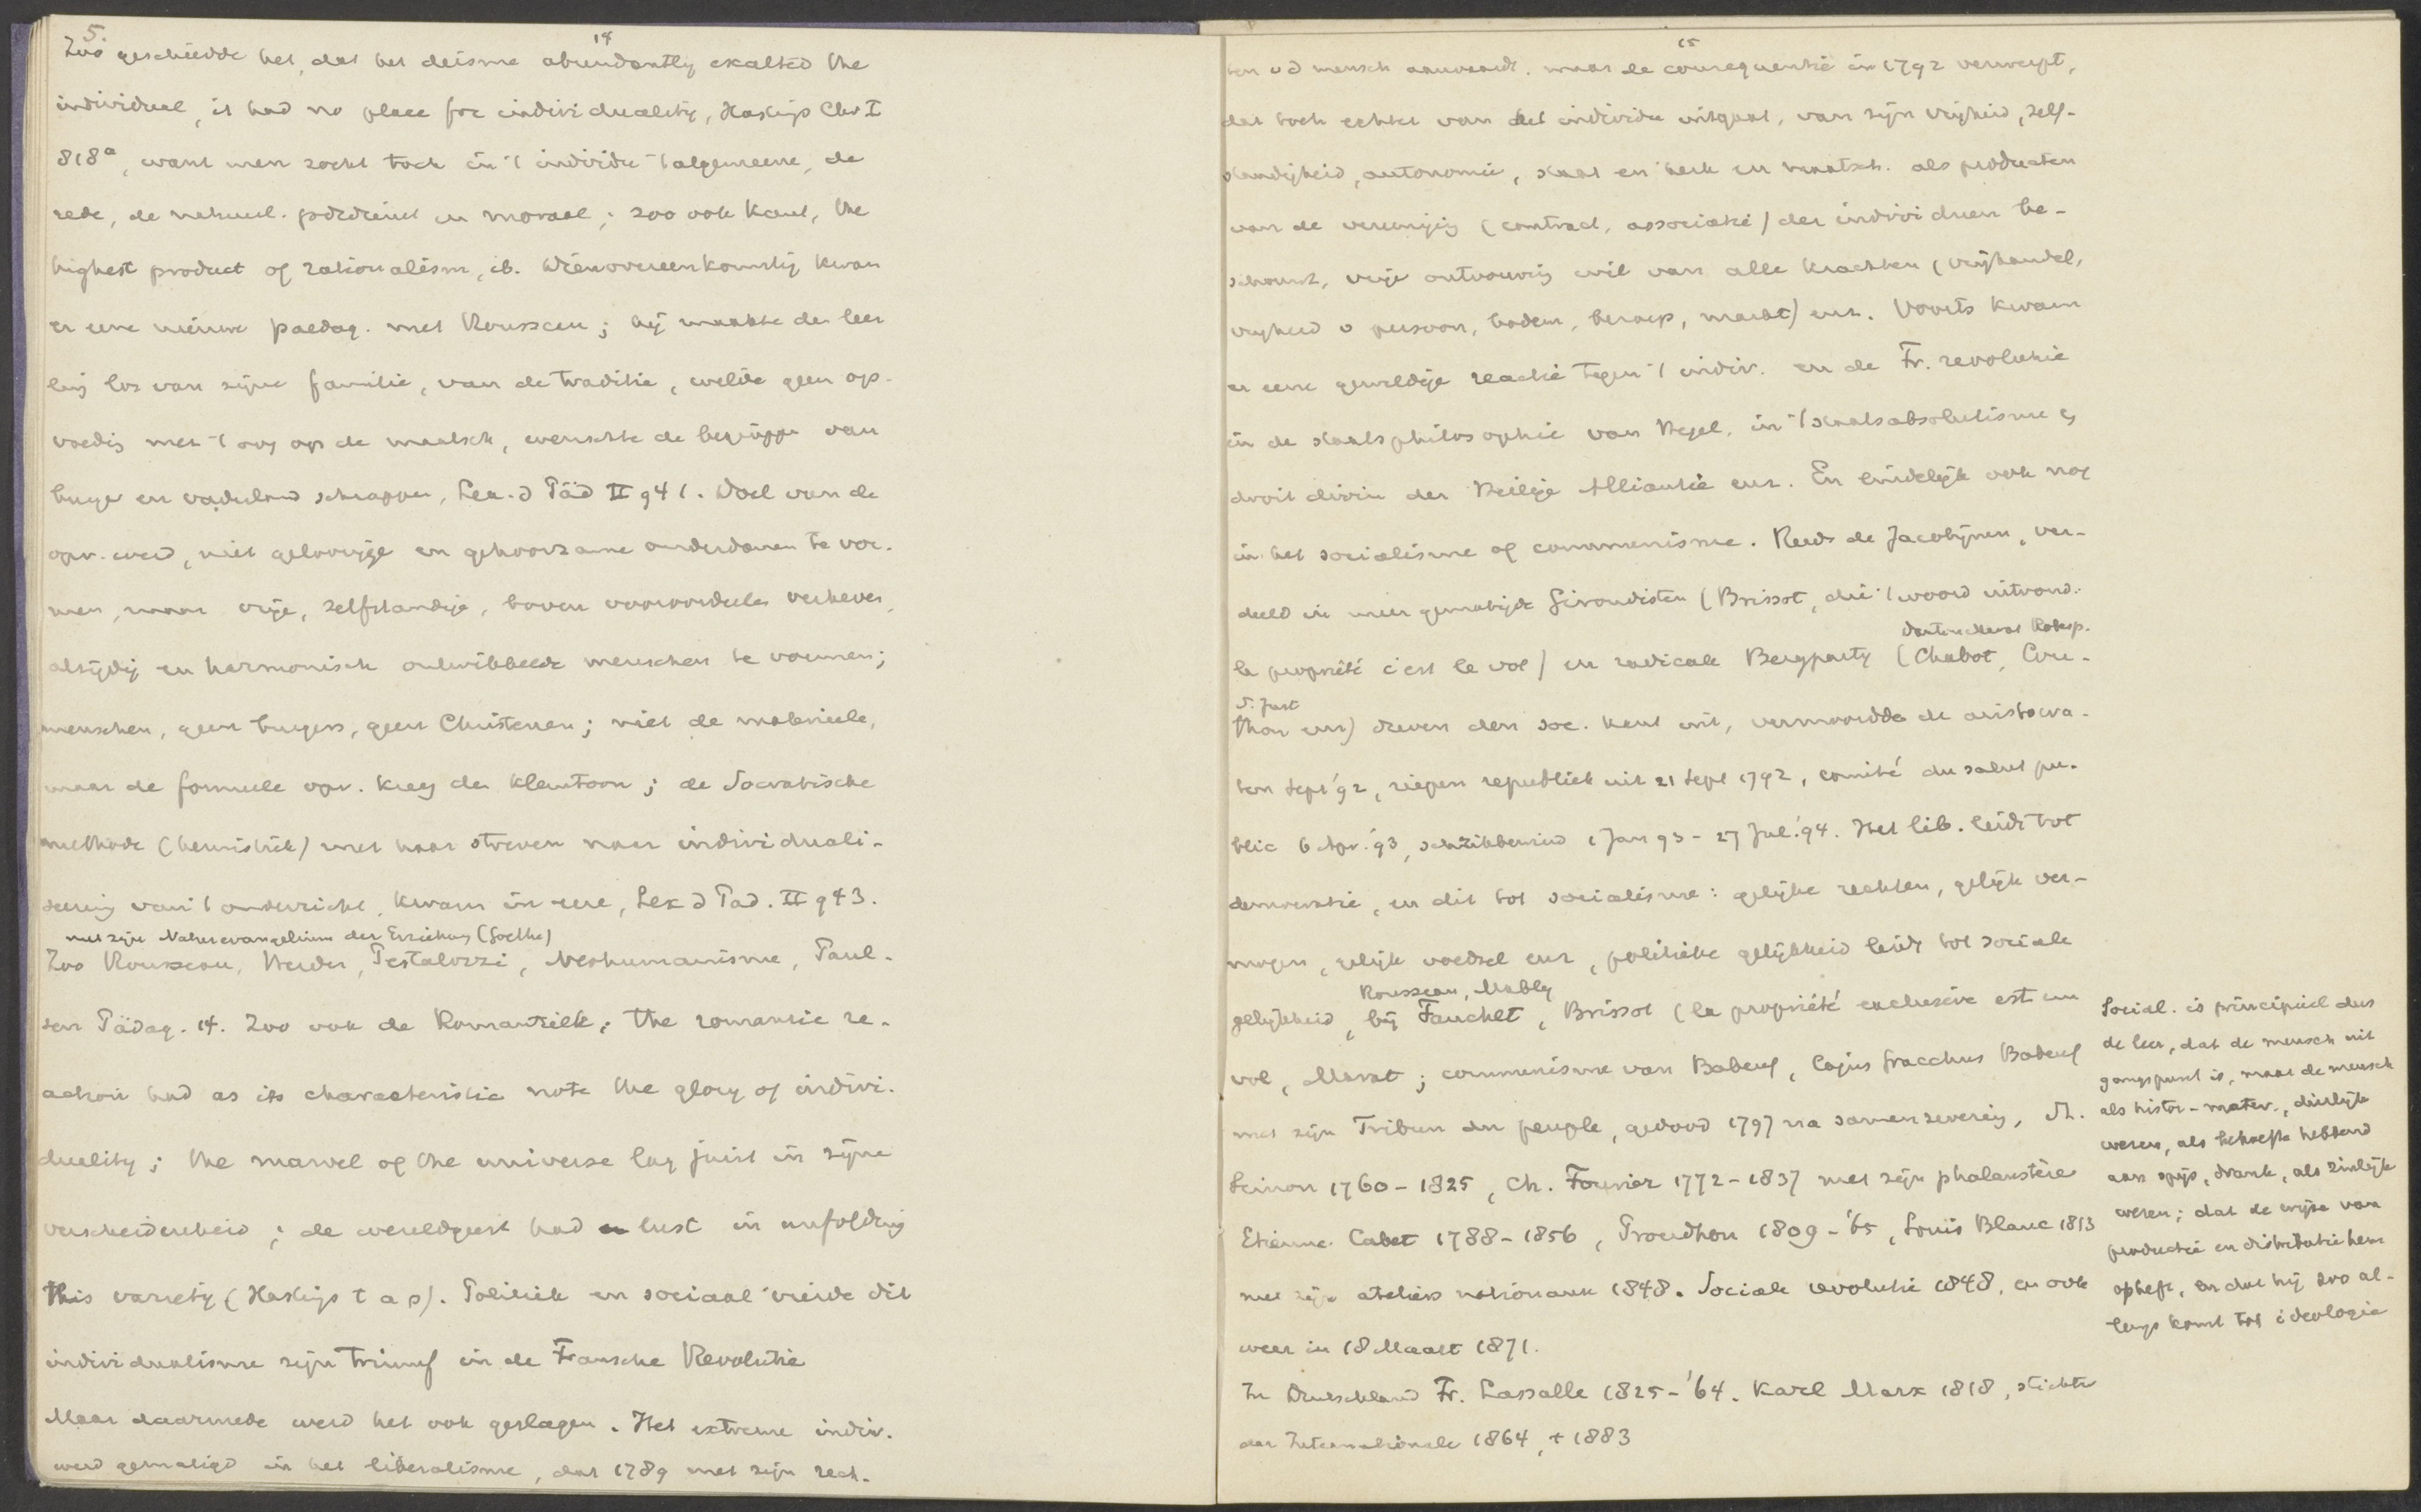 5.
14
Zoo geschiedde het, dat het deisme abundantly exalted the
individual, it had no place for individuality, Haskijs Chr I
818a, want men zocht toch in 't individu 't algemeene, de
rede, de natuurl. godsdienst en moraal; zoo ook Kant, the
highest product of rationalism, ib. Dienovereenkomstig kwam
er eene nieuwe paedag. met Rousseau; hij maakte den leer
ling los van zijne familie, van de traditie, wilde geen op-
voedig met 't oog op de maatsch, wenschte de begrippen van
burger en vaderland schrappen, Lex. d Päd II 941. Doel van de
opv. werd, niet geloovige en gehoorzame onderdanen te vor-
men, maar vrije, zelfstandige, boven vooroordeelen verheven,
alzijdig en harmonisch ontwikkelde menschen te vormen;
menschen, geen burgers, geen Christenen; niet de materieele,
maar de formeele opv. kreeg den klemtoon; de Socratische
methode (heuristiek) met haar streven naar individuali-
seering van 't onderwijs, kwam in eere, Lex d Päd. II 943.
met zijn Naturevangelium der Erziehung (Goethe)
Zoo Rousseau, Herder, Pestalozzi, Neohumanisme, Paul-
sen Pädag. 14. Zoo ook de Romantiek; the romantic re-
action had as its characteristic note the glory of indivi-
duality; the marvel of the universe lag juist in zijne
verscheidenheid; de wereldgeest had lust in unfolding
this variety (Haskijs t a p). Politiek en sociaal vierde dit
individualisme zijn triumf in de Fransche Revolutie
Maar daarmede werd het ook geslagen. Het extreme indiv.
werd gematigd in het liberalisme, dat 1789 met zijn rech-
15
ten v d mensch aanvaardt, maar de consequentie in 1792 verwerpt,
dat toch echter van het individu uitgaat, van zijn vrijheid, zelf-
standigheid, autonomie, staat en kerk en maatsch. als producten
van de vereenigig (contract, associatie) der individuen be-
schouwt, vrije ontvouwing wil van alle krachten (vrijhandel,
vrijheid v persoon, bodem, beroep, markt) enz. Voorts kwam
er eene geweldige reactie tegen 't indiv. en de Fr. revolutie
in de staatsphilosophie van Hegel, in 't staatsabsolutisme en
droit divin der Heilige Alliantie enz. En eindelijk ook nog
in het socialisme of communisme. Reeds de Jacobijnen, ver-
deeld in meer gematigde Girondisten (Brissot, die 't woord uitvond:
Danton Marat Robesp.
la propriété c'est le vol) en radicale Bergpartij (Chabot, Cou-
S. Just
thon enz) dreven den soc. kant uit, vermoordde de aristocra-
ten Sept '92, riepen republiek uit 21 Sept 1792, comité du salut pu-
blic 6 Apr. '93, schrikbewind 1 Jan 93 - 27 Jul. '94. Het lib. leidt tot
democratie, en dit tot socialisme: gelijke rechten, gelijk ver-
mogen, gelijk voedsel enz, politieke gelijkheid leidt tot sociale
Rousseau, Mably
gelijkheid, bij Fauchet, Brissot (la propriété exclusive est un
vol, Marat; communisme van Babeuf, Cajus Gracchus Babeuf
met zijn Tribun du peuple, gedood 1797 na samenzwering, St.
Simon 1760-1825, Ch. Fourier 1772-1837 met zijn phalanstère
Etienne Cabet 1788-1856, Proudhon 1809-'65, Louis Blanc 1813
met zijn ateliers nationaux 1848. Sociale revolutie 1848, en ook
weer in 18 Maart 1871.
In Duitschland Fr. Lassalle 1825-'64. Karl Marx 1818, stichter
der Internationale 1864, + 1883
Social. is principieel dus
de leer, dat de mensch uit
gangspunt is, maar de mensch
als histor-mater., dierlijk
wezen, als behoefte hebbend
aan spijs, drank, als zinlijk
wezen; dat de wijze van
productie en distributie hem
opheft, en dat hij zoo al-
lengs komt tot ideologie